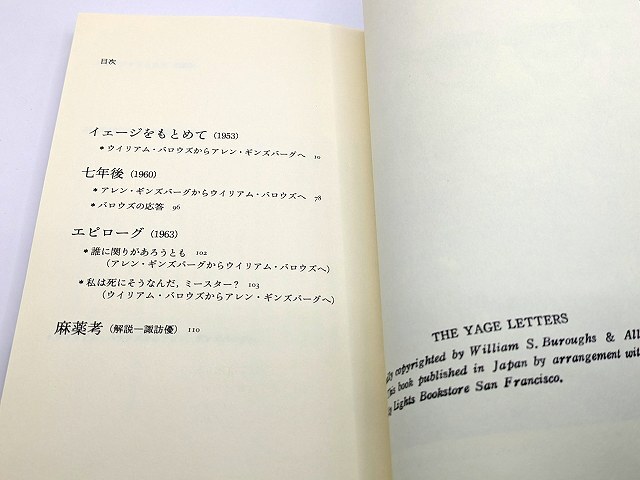 目次
イェージをもとめて (1953)
* ウイリアム・バロウズからアレン・ギンズバーグへ 10
七年後 (1960)
* アレン・ギンズバーグからウイリアム・バロウズへ 78
* バロウズの応答 96
エピローグ (1963)
* 誰に関りがあろうとも 102
(アレン・ギンズバーグからウイリアム・バロウズへ)
* 私は死にそうなんだ, ミースター? 103
(ウイリアム・バロウズからアレン・ギンズバーグへ)
麻薬考 (解説―諏訪優) 110
THE YAGE LETTERS
copyrighted by William S. Buroughs & All
This book published in Japan by arrangement wit
Lights Bookstore San Francisco.